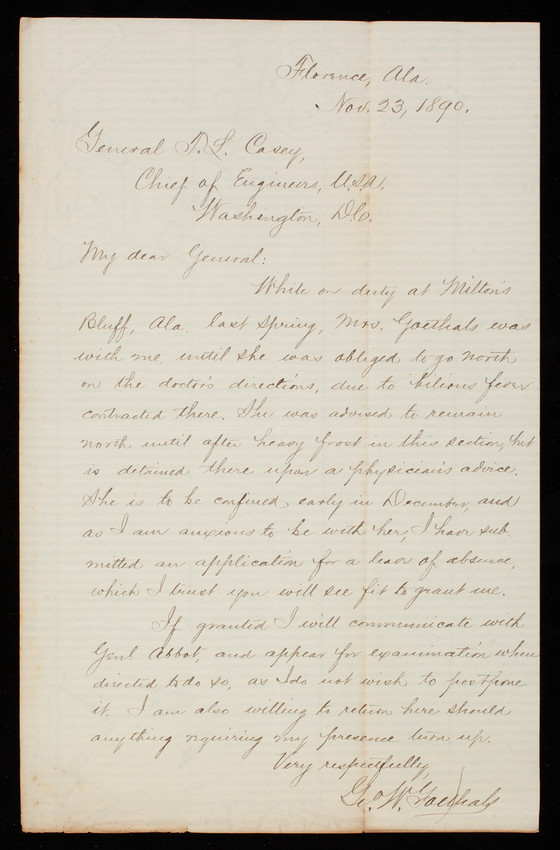 Florence, Ala.
Nov. 23, 1890.
General T. L. Casey,
Chief of Engineers, U.S.A.
Washington, D.C.
My dear General:
While on duty at Milton's
Bluff, Ala. last spring, Mrs. Goethals was
with me until she was obliged to go north
on the doctor's directions, due to bilious fever
contracted there. She was advised to remain
north until after heavy frost in this section, but
is detained there upon a physician's advice.
She is to be confined early in December, and
as I am anxious to be with her, I have sub-
mitted an application for a leave of absence,
which I trust you will see fit to grant me.
If granted I will communicate with
Genl Abbot, and appear for examination when
directed to do so, as I do not wish to postpone
it. I am also willing to return here should
anything requiring my presence turn up.
Very respectfully,
Geo W. Goethals